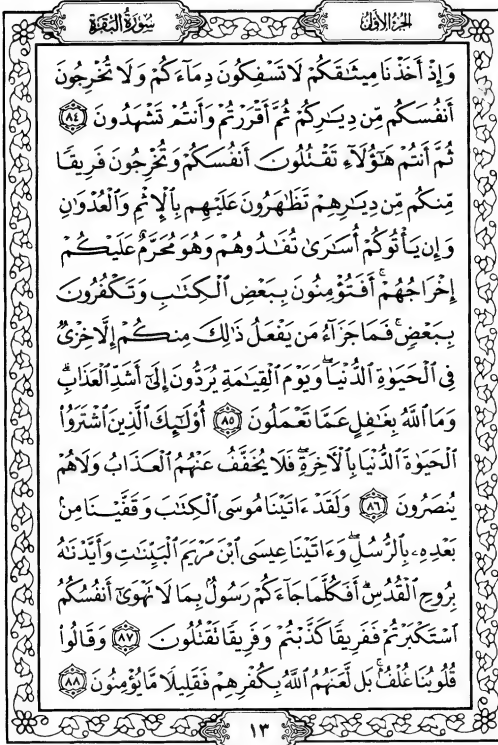 الجزء الأول
سورة البقرة
وَإِذْ أَخَذْنَا مِيثَٰقَكُمْ لَا تَسْفِكُونَ دِمَآءَكُمْ وَلَا تُخْرِجُونَ
أَنفُسَكُم مِّن دِيَٰرِكُمْ ثُمَّ أَقْرَرْتُمْ وَأَنتُمْ تَشْهَدُونَ ٨٤
ثُمَّ أَنتُمْ هَٰٓؤُلَآءِ تَقْتُلُونَ أَنفُسَكُمْ وَتُخْرِجُونَ فَرِيقًا
مِّنكُم مِّن دِيَٰرِهِمْ تَظَٰهَرُونَ عَلَيْهِم بِالْإِثْمِ وَالْعُدْوَٰنِ
وَإِن يَأْتُوكُمْ أُسَٰرَىٰ تُفَٰدُوهُمْ وَهُوَ مُحَرَّمٌ عَلَيْكُمْ
إِخْرَاجُهُمْ ۚ أَفَتُؤْمِنُونَ بِبَعْضِ الْكِتَٰبِ وَتَكْفُرُونَ
بِبَعْضٍ ۚ فَمَا جَزَآءُ مَن يَفْعَلُ ذَٰلِكَ مِنكُمْ إِلَّا خِزْىٌ
فِى الْحَيَوٰةِ الدُّنْيَا ۖ وَيَوْمَ الْقِيَٰمَةِ يُرَدُّونَ إِلَىٰٓ أَشَدِّ الْعَذَابِ ۗ
وَمَا اللَّهُ بِغَٰفِلٍ عَمَّا تَعْمَلُونَ ٨٥ أُو۟لَٰٓئِكَ الَّذِينَ اشْتَرَوُا۟
الْحَيَوٰةَ الدُّنْيَا بِالْءَاخِرَةِ ۖ فَلَا يُخَفَّفُ عَنْهُمُ الْعَذَابُ وَلَا هُمْ
يُنصَرُونَ ٨٦ وَلَقَدْ ءَاتَيْنَا مُوسَى الْكِتَٰبَ وَقَفَّيْنَا مِنۢ
بَعْدِهِۦ بِالرُّسُلِ ۖ وَءَاتَيْنَا عِيسَى ابْنَ مَرْيَمَ الْبَيِّنَٰتِ وَأَيَّدْنَٰهُ
بِرُوحِ الْقُدُسِ ۗ أَفَكُلَّمَا جَآءَكُمْ رَسُولٌۢ بِمَا لَا تَهْوَىٰٓ أَنفُسُكُمُ
اسْتَكْبَرْتُمْ فَفَرِيقًا كَذَّبْتُمْ وَفَرِيقًا تَقْتُلُونَ ٨٧ وَقَالُوا۟
قُلُوبُنَا غُلْفٌۢ ۚ بَل لَّعَنَهُمُ اللَّهُ بِكُفْرِهِمْ فَقَلِيلًا مَّا يُؤْمِنُونَ ٨٨
١٣